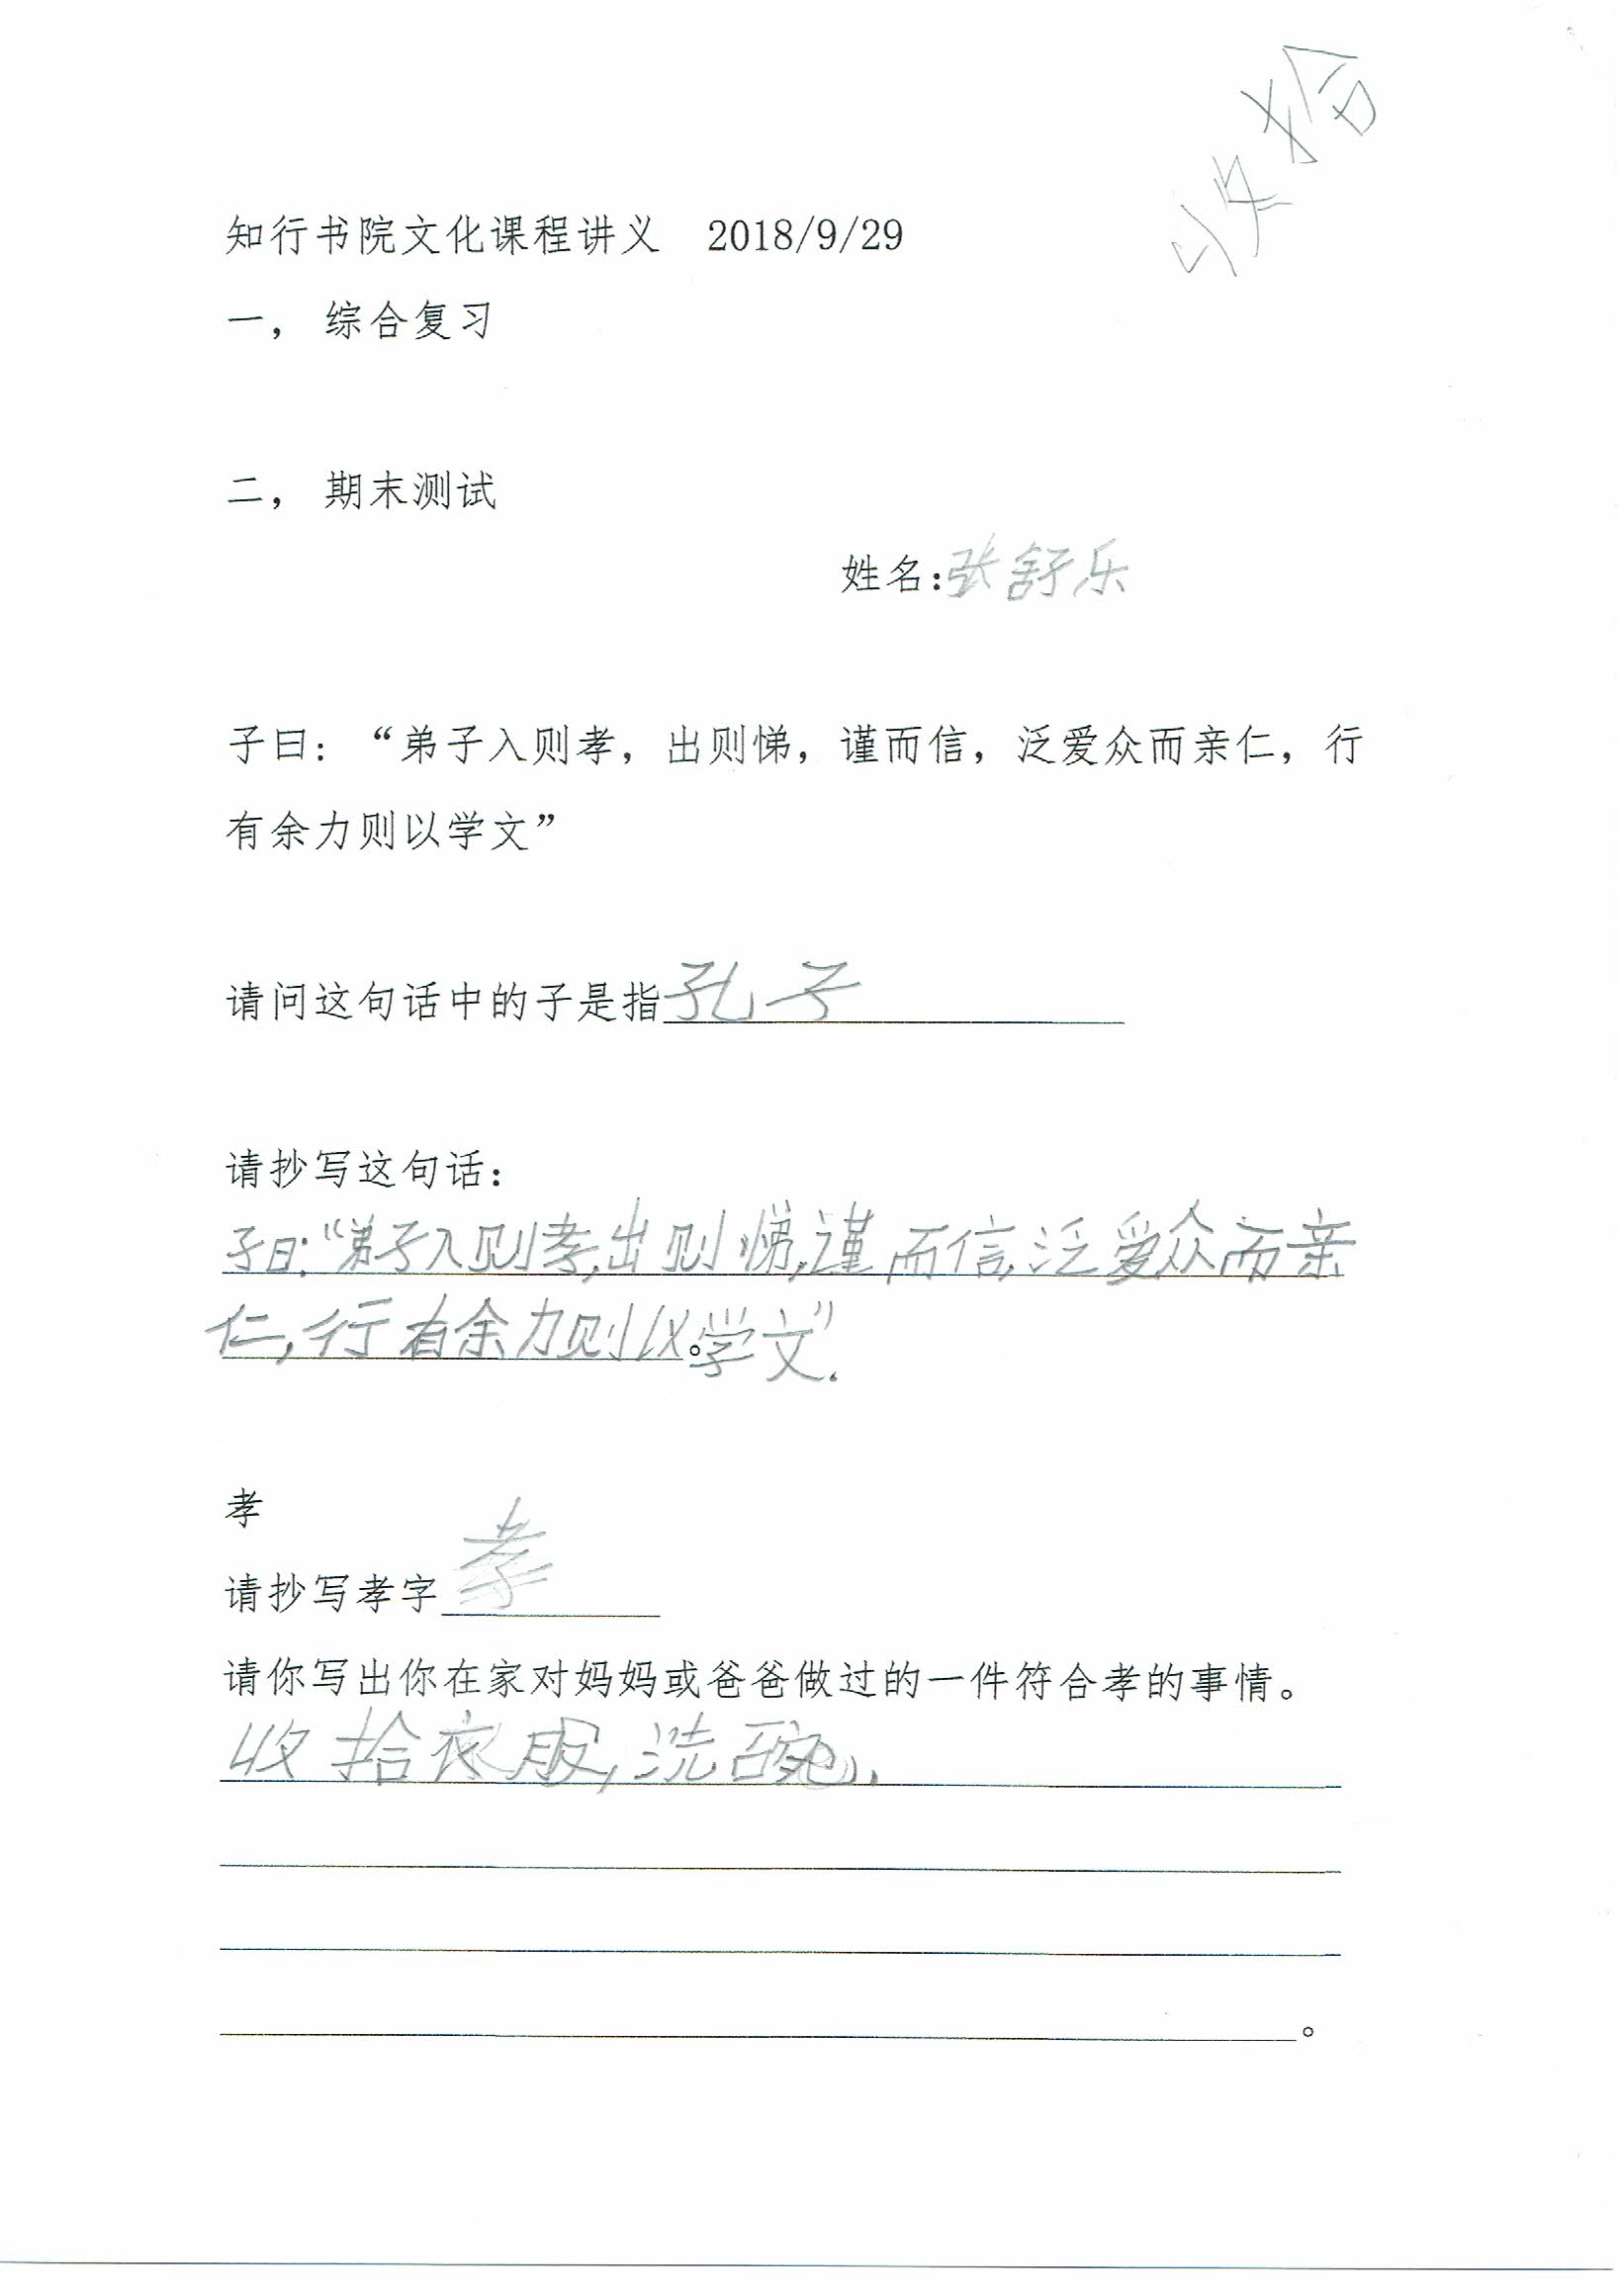 知行书院文化课程讲义 2018/9/29
一， 综合复习
二， 期末测试
姓名:张舒乐
子曰：“弟子入则孝，出则悌，谨而信，泛爱众而亲仁，行
有余力则以学文”
请问这句话中的子是指孔子
请抄写这句话：
子曰:“弟子入则孝,出则悌,谨而信,泛爱众而亲
仁,行有余力则以。学文”.
孝
请抄写孝字孝
请你写出你在家对妈妈或爸爸做过的一件符合孝的事情。
收拾衣服,洗碗.
。